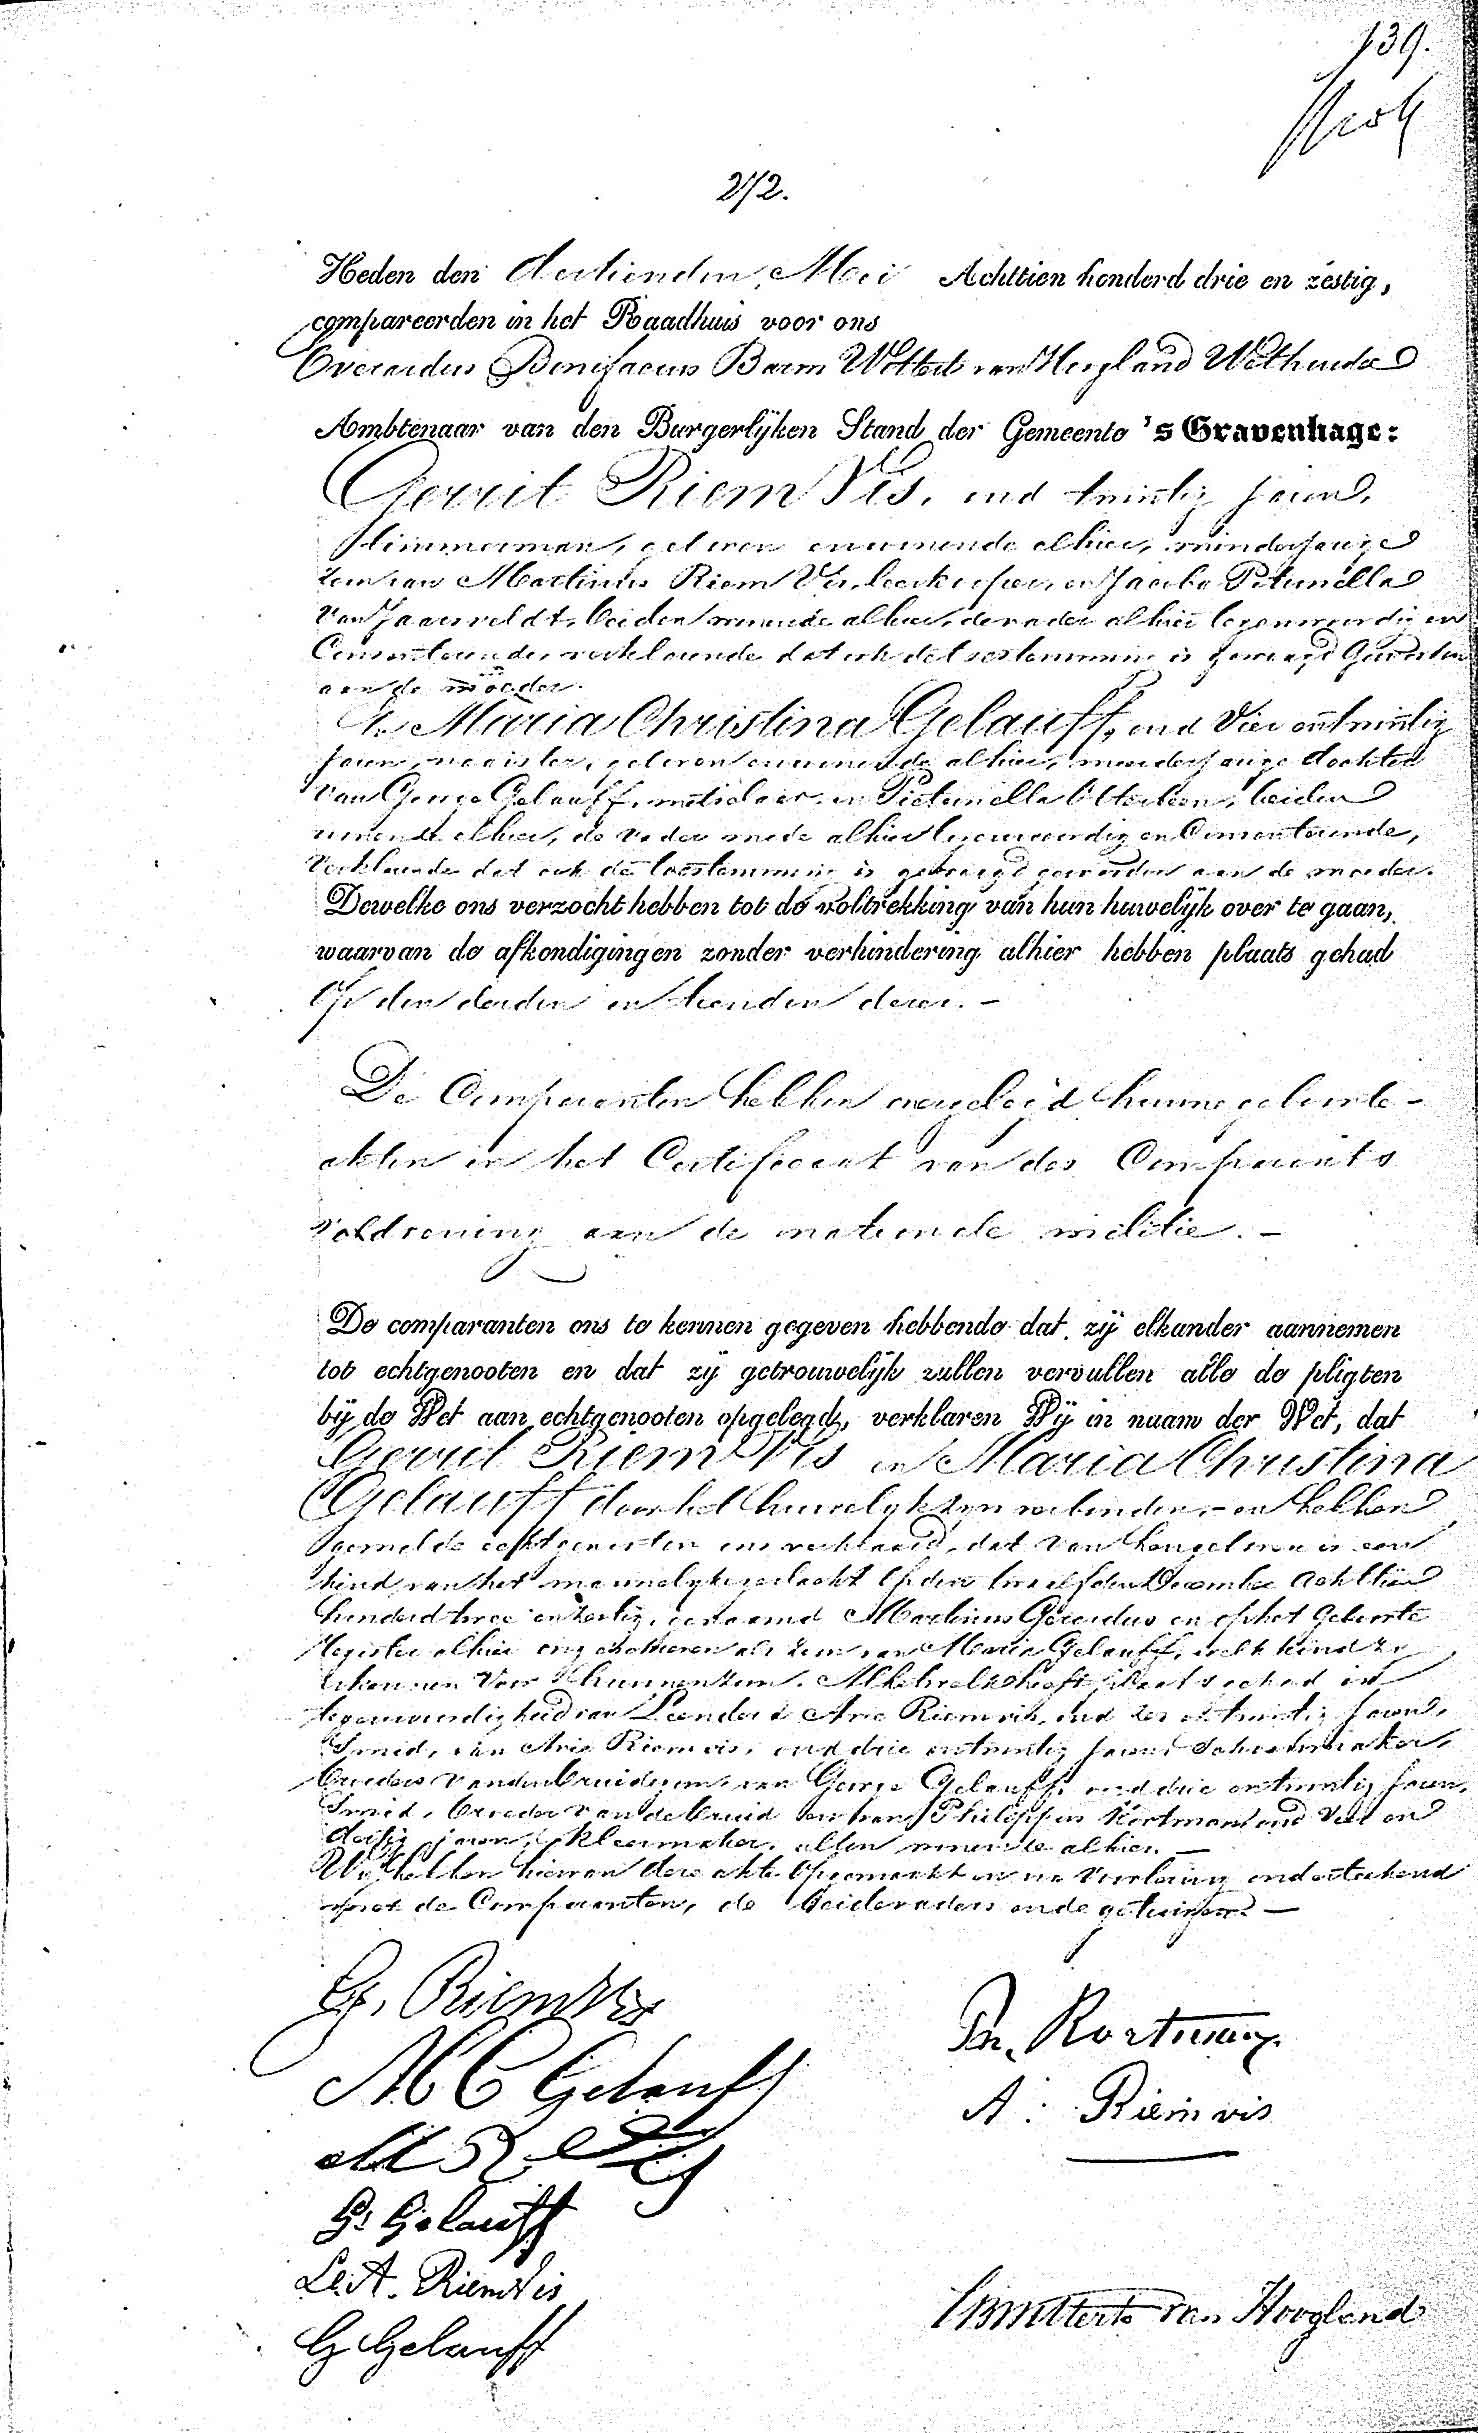 139.
272.
Heden den dertienden Mei Achttien honderd drie en zestig,
compareerden in het Raadhuis voor ons
Everardus Bonifacius Baron Wittert van Hoogland Wethouder
Ambtenaar van den Burgerlijken Stand der Gemeente 's Gravenhage:
Gerrit Riem Vis, oud twintig jaren,
timmerman, geboren en wonende alhier, minderjarige
zoon van Martinus Riem Vis, leerkooper, en Jacoba Petronella
van Jaarsveldt, beiden wonende alhier, de vader alhier tegenwoordig en
Consenteerende, verklarende dat ook de toestemming is gevraagd geworden
aan de moeder.
En Maria Christina Gelauff, oud Vier en twintig
jaren, naaister, geboren en wonende alhier, meerderjarige dochter
van George Gelauff, metselaar, en Pieternella Otterloon, beiden
wonende alhier, de vader mede alhier tegenwoordig en Consenteerende,
Verklarende dat ook de toestemming is gevraagd geworden aan de moeder.
Dewelke ons verzocht hebben tot de voltrekking van hun huwelijk over te gaan,
waarvan de afkondigingen zonder verhindering alhier hebben plaats gehad
Op den derden en tienden dezer. –
De Comparanten hebben overgelegd hunne geboorte-
akten en het Certificaat van des Comparants
voldoening aan de nationale militie. –
De comparanten ons te kennen gegeven hebbende dat zij elkander aannemen
tot echtgenooten en dat zij getrouwelijk zullen vervullen alle de pligten
bij de Wet aan echtgenooten opgelegd, verklaren Wij in naam der Wet, dat
Gerrit Riem Vis en Maria Christina
Gelauff door het huwelijk zijn verbonden, – en hebben
voormelde echtgenooten ons verklaard, dat van hen geboren is een
kind van het mannelijk geslacht Op den twaalfden December Achttien
honderd twee en zestig, genaamd Martinus Gerardus en op het Geboorte
Register alhier ingeschreven als zoon van Maria Gelauff, welk kind zij
erkennen voor hunnen zoon. Al hetwelk heeft plaats gehad in
tegenwoordigheid van Leendert Arie Riem vis, oud zes en twintig jaren,
Smid, van Arie Riem vis, oud drie en twintig jaren Schoenmaker,
broeders van den bruidegom, van George Gelauff, oud drie en twintig jaren,
Smid, broeder van de bruid en van Philippus Kortman oud Vier en
dertig jaren, kleermaker, allen wonende alhier. –
Wij hebben hiervan deze akte Opgemaakt en na Voorlezing onderteekend
met de Comparanten, de beide vaders en de getuigen. –
G. Riem Vis
M C Gelauff
G: Gelauff
Le. A. Riem Vis
G Gelauff
Ph. Kortman
A: Riem vis
Wittert van Hoogland